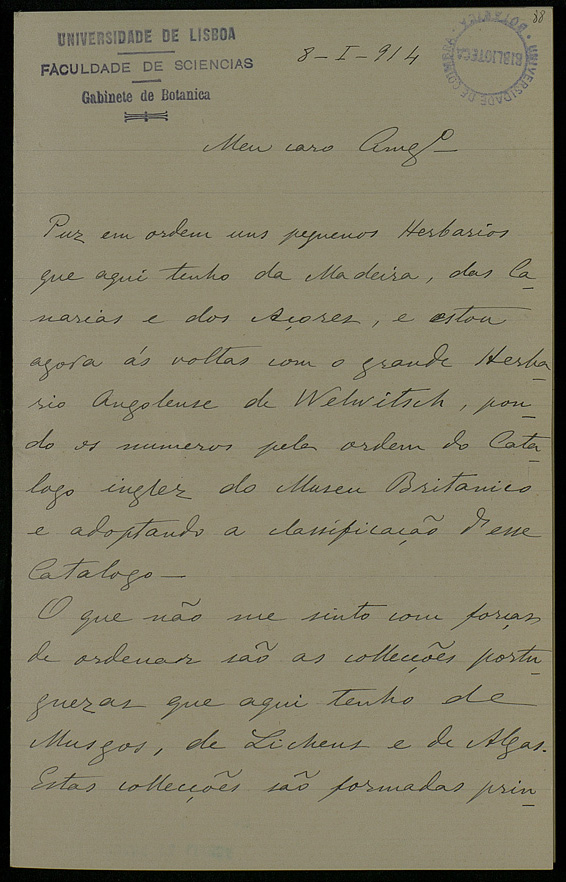 88
UNIVERSIDADE DE LISBOA
FACULDADE DE SCIENCIAS
Gabinete de Botanica
8-I-914
UNIVERSIDADE DE COIMBRA · BOTANICA ·
BIBLIOTECA
Meu caro Amgº
Puz em ordem uns pequenos Herbarios
que aqui tenho da Madeira, das Ca-
narias e dos Açores, e estou
agora ás voltas com o grande Herba-
rio Angolense de Welwitsch, pon-
do os numeros pela ordem do Cata-
logo inglez do Museu Britanico
e adoptando a classificação d'esse
Catalogo —
O que não me sinto com forças
de ordenar são as collecções portu-
guezas que aqui tenho de
Musgos, de Lichens e de Algas.
Estas collecções são formadas prin-